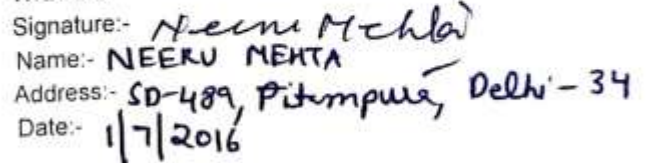 Signature:- Neeru Mehta
Name:- NEERU MEHTA
Address:- SD-489, Pitampura, Delhi - 34
Date:- 1/7/2016